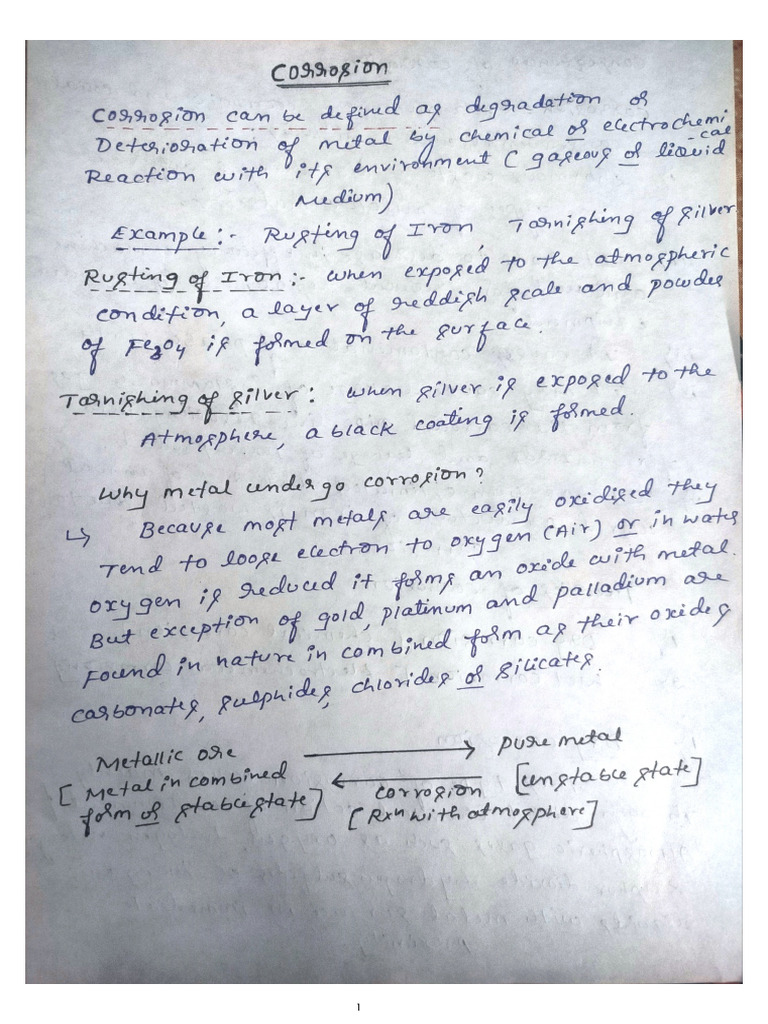 Corrosion
Corrosion can be defined as degradation or
Deterioration of metal by chemical or electrochemi
-cal
Reaction with its environment ( gaseous or liquid
Medium)
Example:- Rusting of Iron, Tarnishing of silver
Rusting of Iron:- when exposed to the atmospheric
condition, a layer of reddish scale and powder
of Fe3O4 is formed on the surface.
Tarnishing of silver: when silver is exposed to the
Atmosphere, a black coating is formed.
Why metal undergo corrosion?
↳ Because most metals are easily oxidised they
Tend to loose electron to oxygen (Air) or in water
oxygen is reduced it forms an oxide with metal.
But exception of gold, platinum and palladium are
Found in nature in combined form as their oxides
carbonates, sulphides, chlorides or silicates.
Metallic ore → pure metal
[Metal in combined ← [unstable state]
form or stable state] corrosion
[Rxn with atmosphere]
1